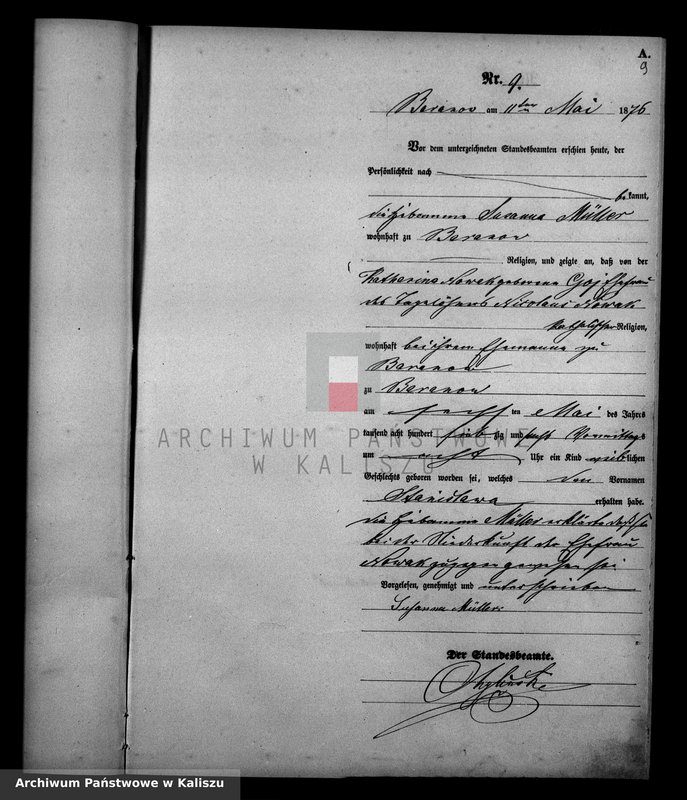 A.
9
Nr. 9.
Baranow am 11ten Mai 1876
Vor dem unterzeichneten Standesbeamten erschien heute, der
Persönlichkeit nach
bekannt,
die Hebamme Susanna Müller
wohnhaft zu Baranow
Religion, und zeigte an, daß von der
Katharina Nowak geborene Ehefrau
des Tagelöhners Nicolaus Nowak
katholischer Religion,
wohnhaft bei ihrem Ehemanne zu
Baranow
zu Baranow
am ten Mai des Jahrs
tausend acht hundert zig und Vormittags
um acht Uhr ein Kind weiblichen
Geschlechts geboren worden sei, welches den Vornamen
Stanislawa erhalten habe.
die Hebamme Müller erklärte daß sie
bei der Niederkunft der Ehefrau
Nowak zugegen gewesen sei
Vorgelesen, genehmigt und unterschrieben
Susanna Müller.
Der Standesbeamte.
ARCHIWUM PAŃSTWOWE
W KALISZU
Archiwum Państwowe w Kaliszu